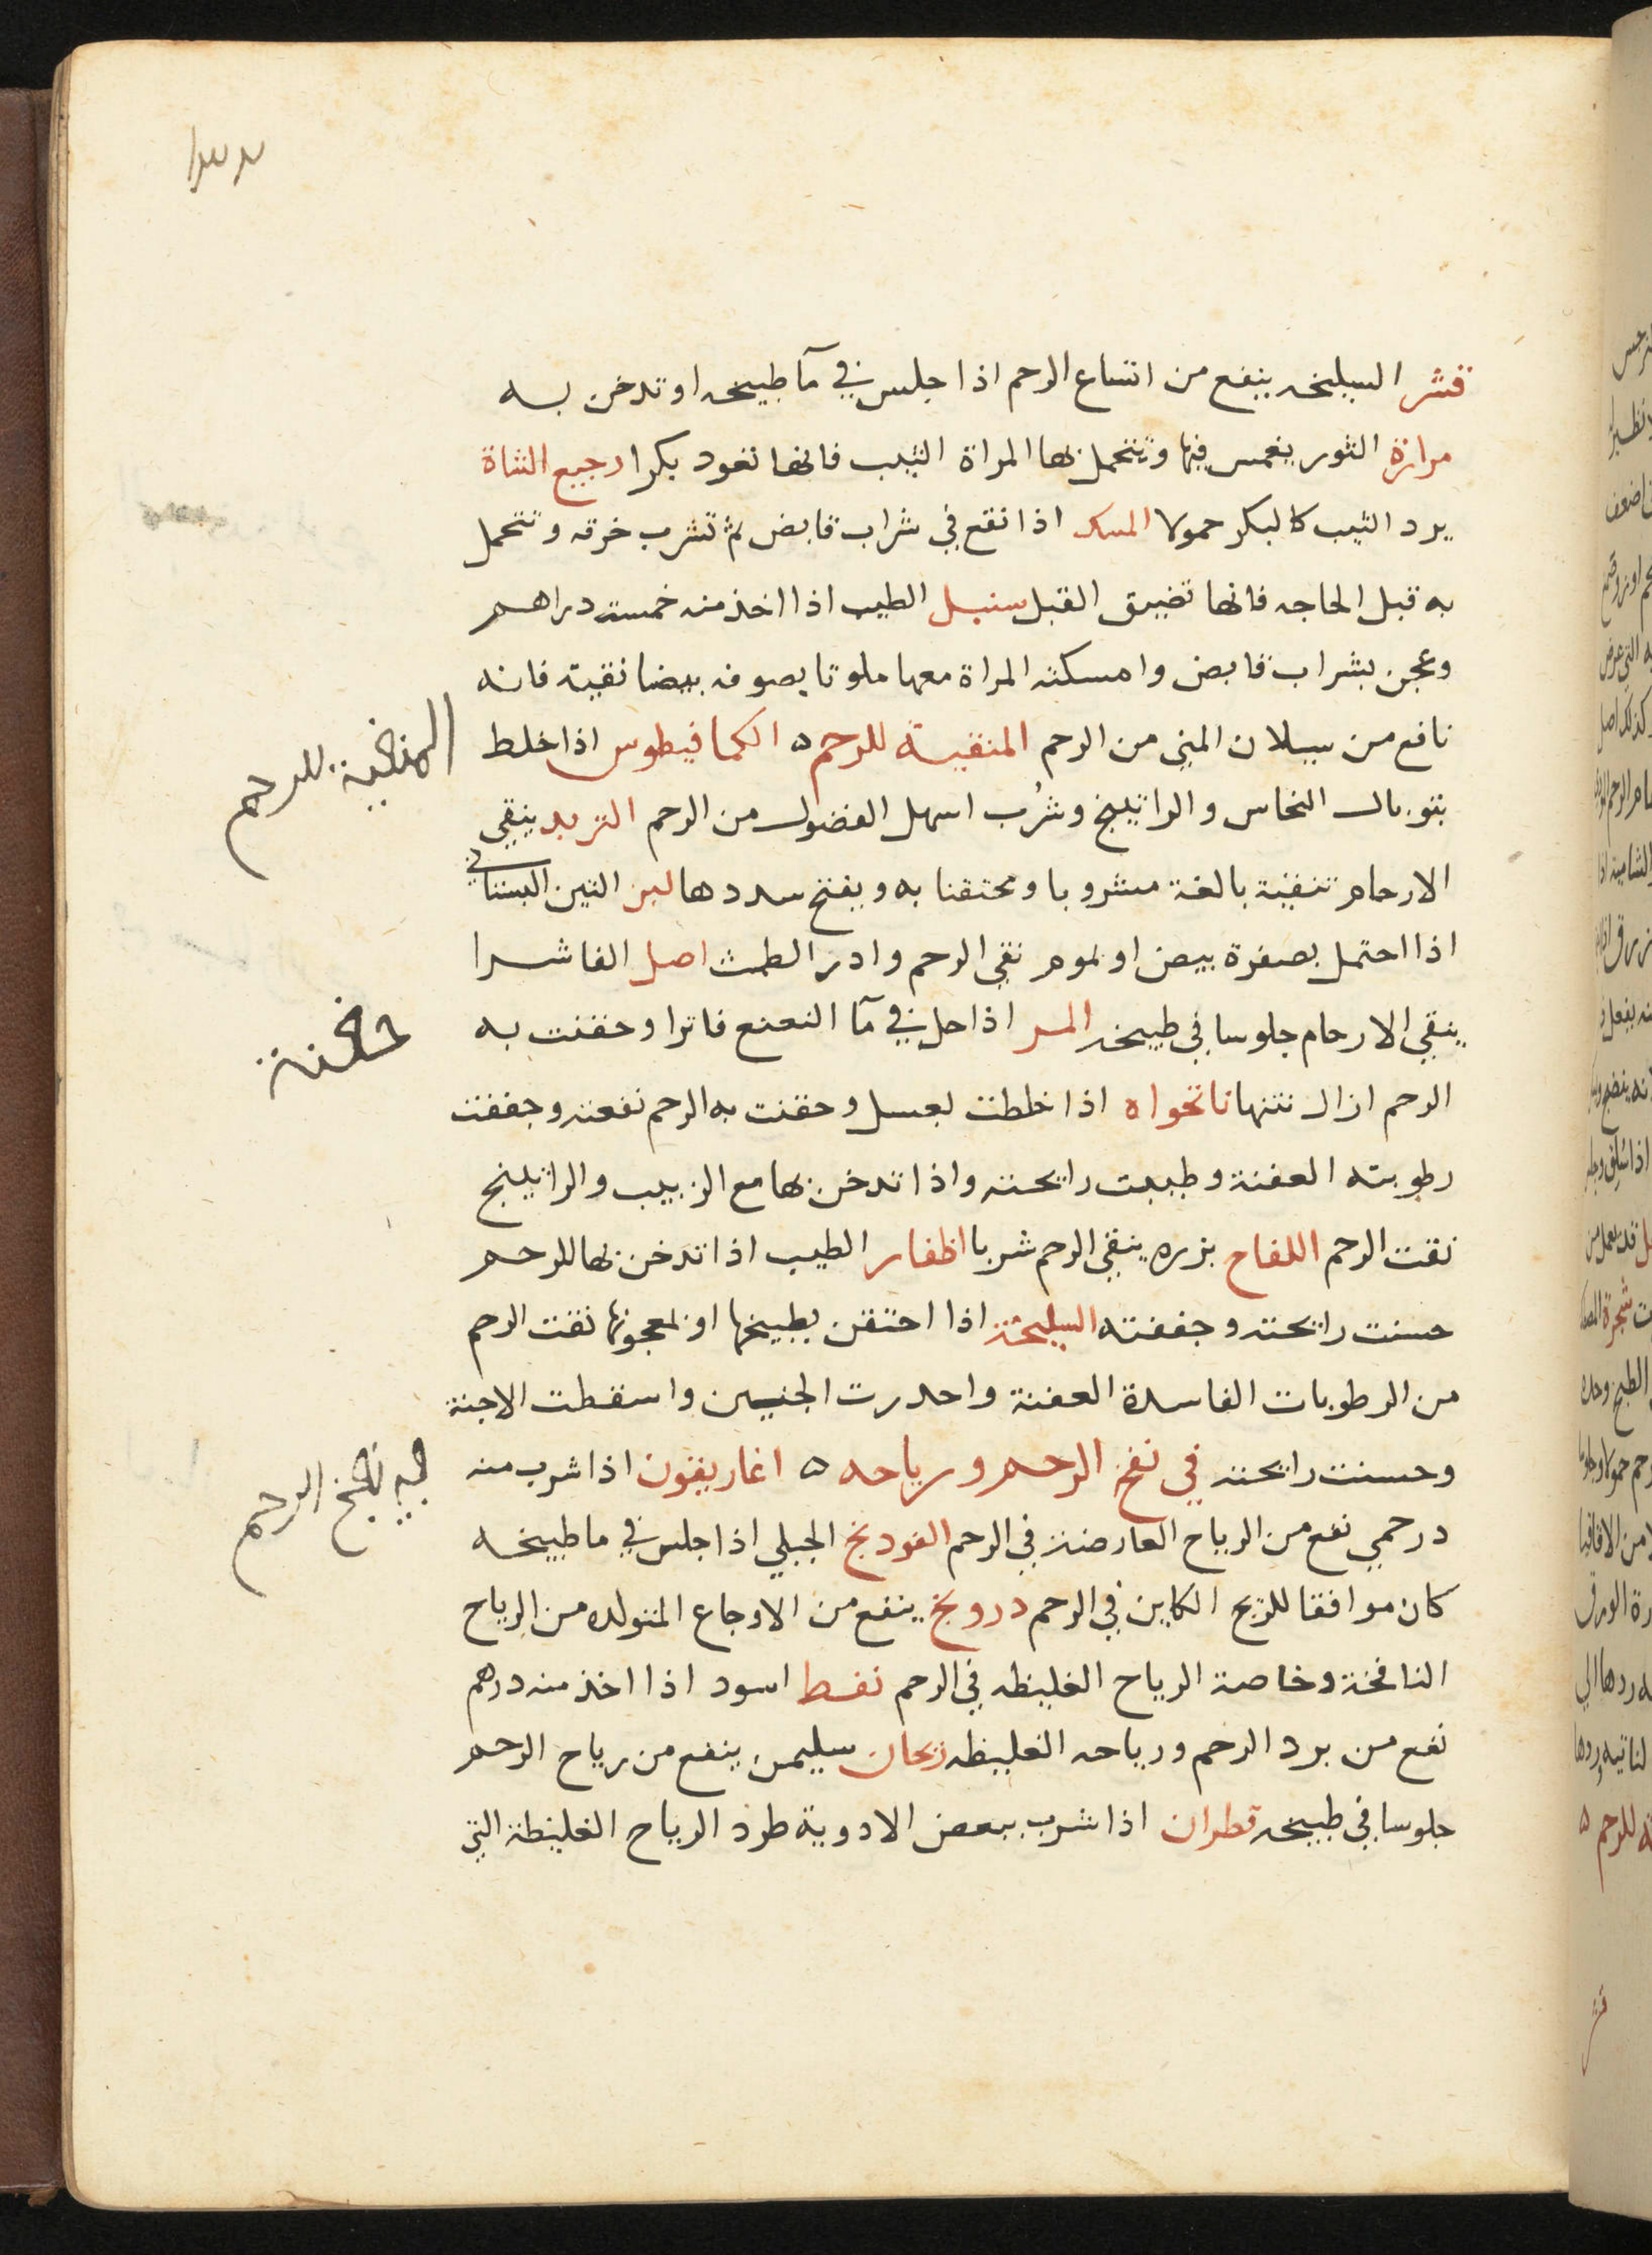 قشر السليخه ينفع من اتساع الرحم اذا جلس في مآ طبيخه او تدخن به
مرارة الثور يغمس فيها وتتحمل بها المراة الثيب فانها تعود بكرا رجيع الشاة
يرد الثيب كالبكر حمولا المسك اذا نقع في شراب قابض ثم تشرب خرقه وتتحمل
به قبل الحاجه فانها تضيق القبل سنبل الطيب اذا اخذ منه خمسة دراهم
وعجن بشراب قابض وامسكته المراة معها ملوتا بصوفه بيضا نقية فانه
نافع من سيلان المني من الرحم المنقية للرحم ه الكمافيطوس اذا خلط
بتوبال النحاس والراتينج وشُرب اسهل الفضول من الرحم التربد ينقي
الارحام تنقية بالغة مشروبا ومحتقنا به ويفتح سددها لبن التين البستاني
اذا احتمل بصفرة بيض او بموم نقي الرحم وادر الطمث اصل الفاشرا
ينقي الارحام جلوسا في طبيخه المر اذا حل في مآ النعنع فاترا وحقنت به
الرحم ازال نتنها نانخواه اذا خلطت بعسل وحقنت به الرحم نفعته وجففت
رطوبته العفنة وطيبت رايحته واذا تدخن بها مع الزبيب والراتينج
نقت الرحم اللفاح بزره ينقي الرحم شربا اظفار الطيب اذا تدخن بها للرحم
حسنت رايحته وجففته السليخة اذا احتقن بطبيخها او بمعجونها نقت الرحم
من الرطوبات الفاسدة العفنة واحدرت الجنين واسقطت الاجنة
وحسنت رايحته في نفخ الرحم ورياحه ه اغاريقون اذا شرب منه
درخمي نفع من الرياح العارضة في الرحم الفودنج الجبلي اذا جلس في ما طبيخه
كان موافقا للريح الكاين في الرحم درونج ينفع من الاوجاع المتولده من الرياح
النافخة وخاصة الرياح الغليظه في الرحم نفط اسود اذا اخذ منه درهم
نفع من برد الرحم ورياحه الغليظه ريحان سليمن ينفع من رياح الرحم
جلوسا في طبيخه قطران اذا شرب ببعض الادوية طرد الرياح الغليظة التي
المنقية للرحم
حقنة
في نفخ الرحم